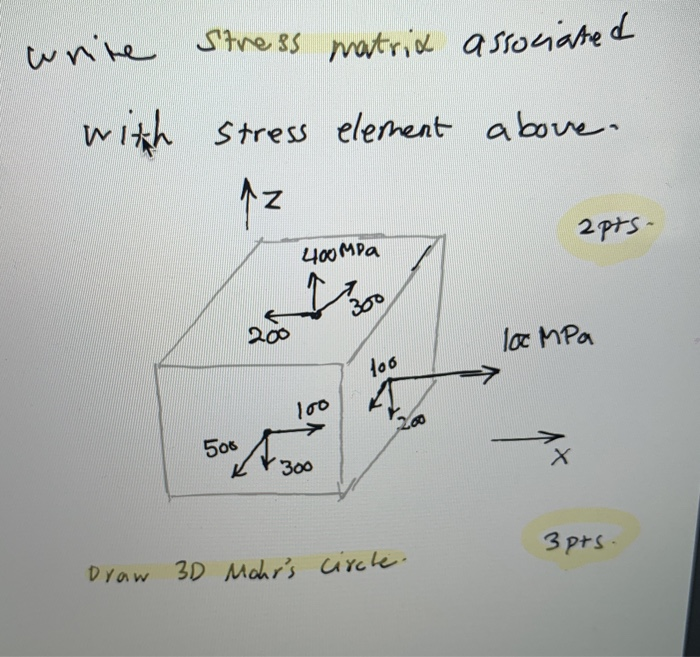 write stress matrix associated
with stress element above.
Z
2 pts.
400 MPa
300
200
100 MPa
100
200
100
500
300
X
3 pts.
Draw 3D Mohr's circle.